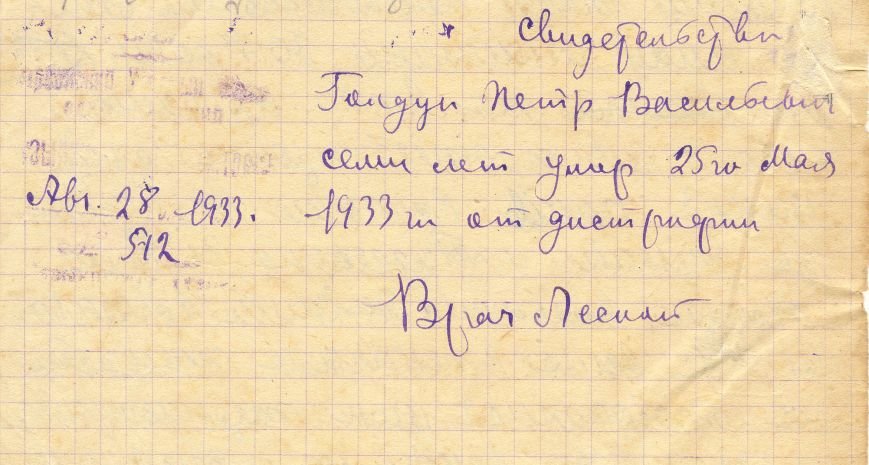 Свидетельство
Голдун Петр Васильевич
семи лет умер 25го Мая
Авг. 28 1933.
512
1933 г. от дистрофии
Врач